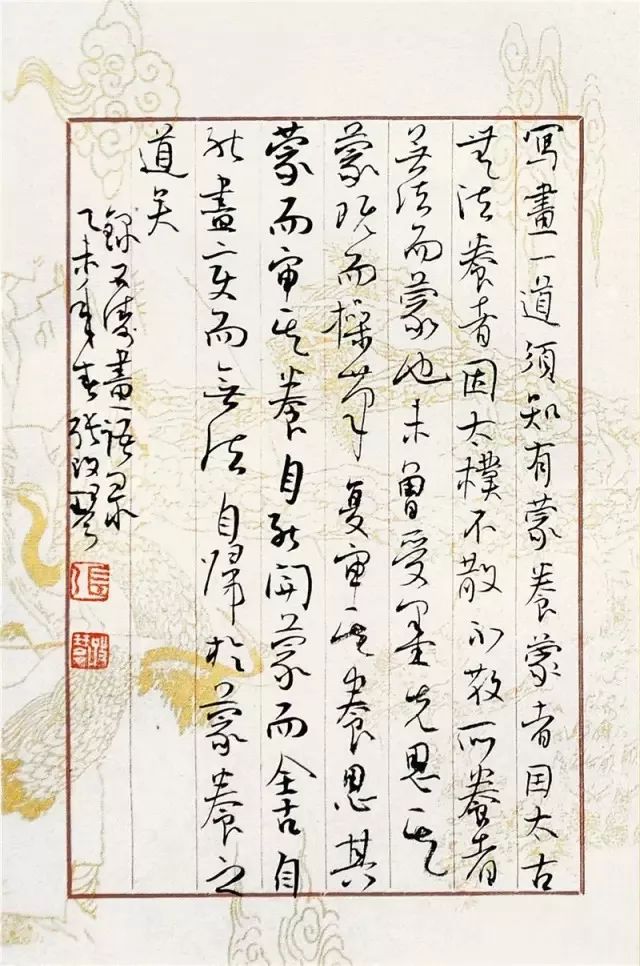 寫畫一道須知有蒙養蒙者因太古
無法養者因太樸不散不散所養者
無法而蒙也未曾受墨先思其
蒙既而操筆復審其養思其
蒙而審其養自能開蒙而全古自
能畫變而無法自歸於蒙養之
道矣
錄石濤畫語錄
乙未年春張
張